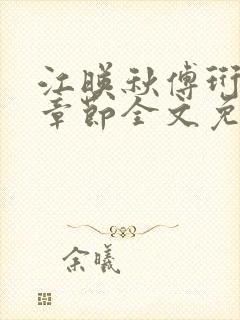 江暎秋傅珩
章节全文免
余曦